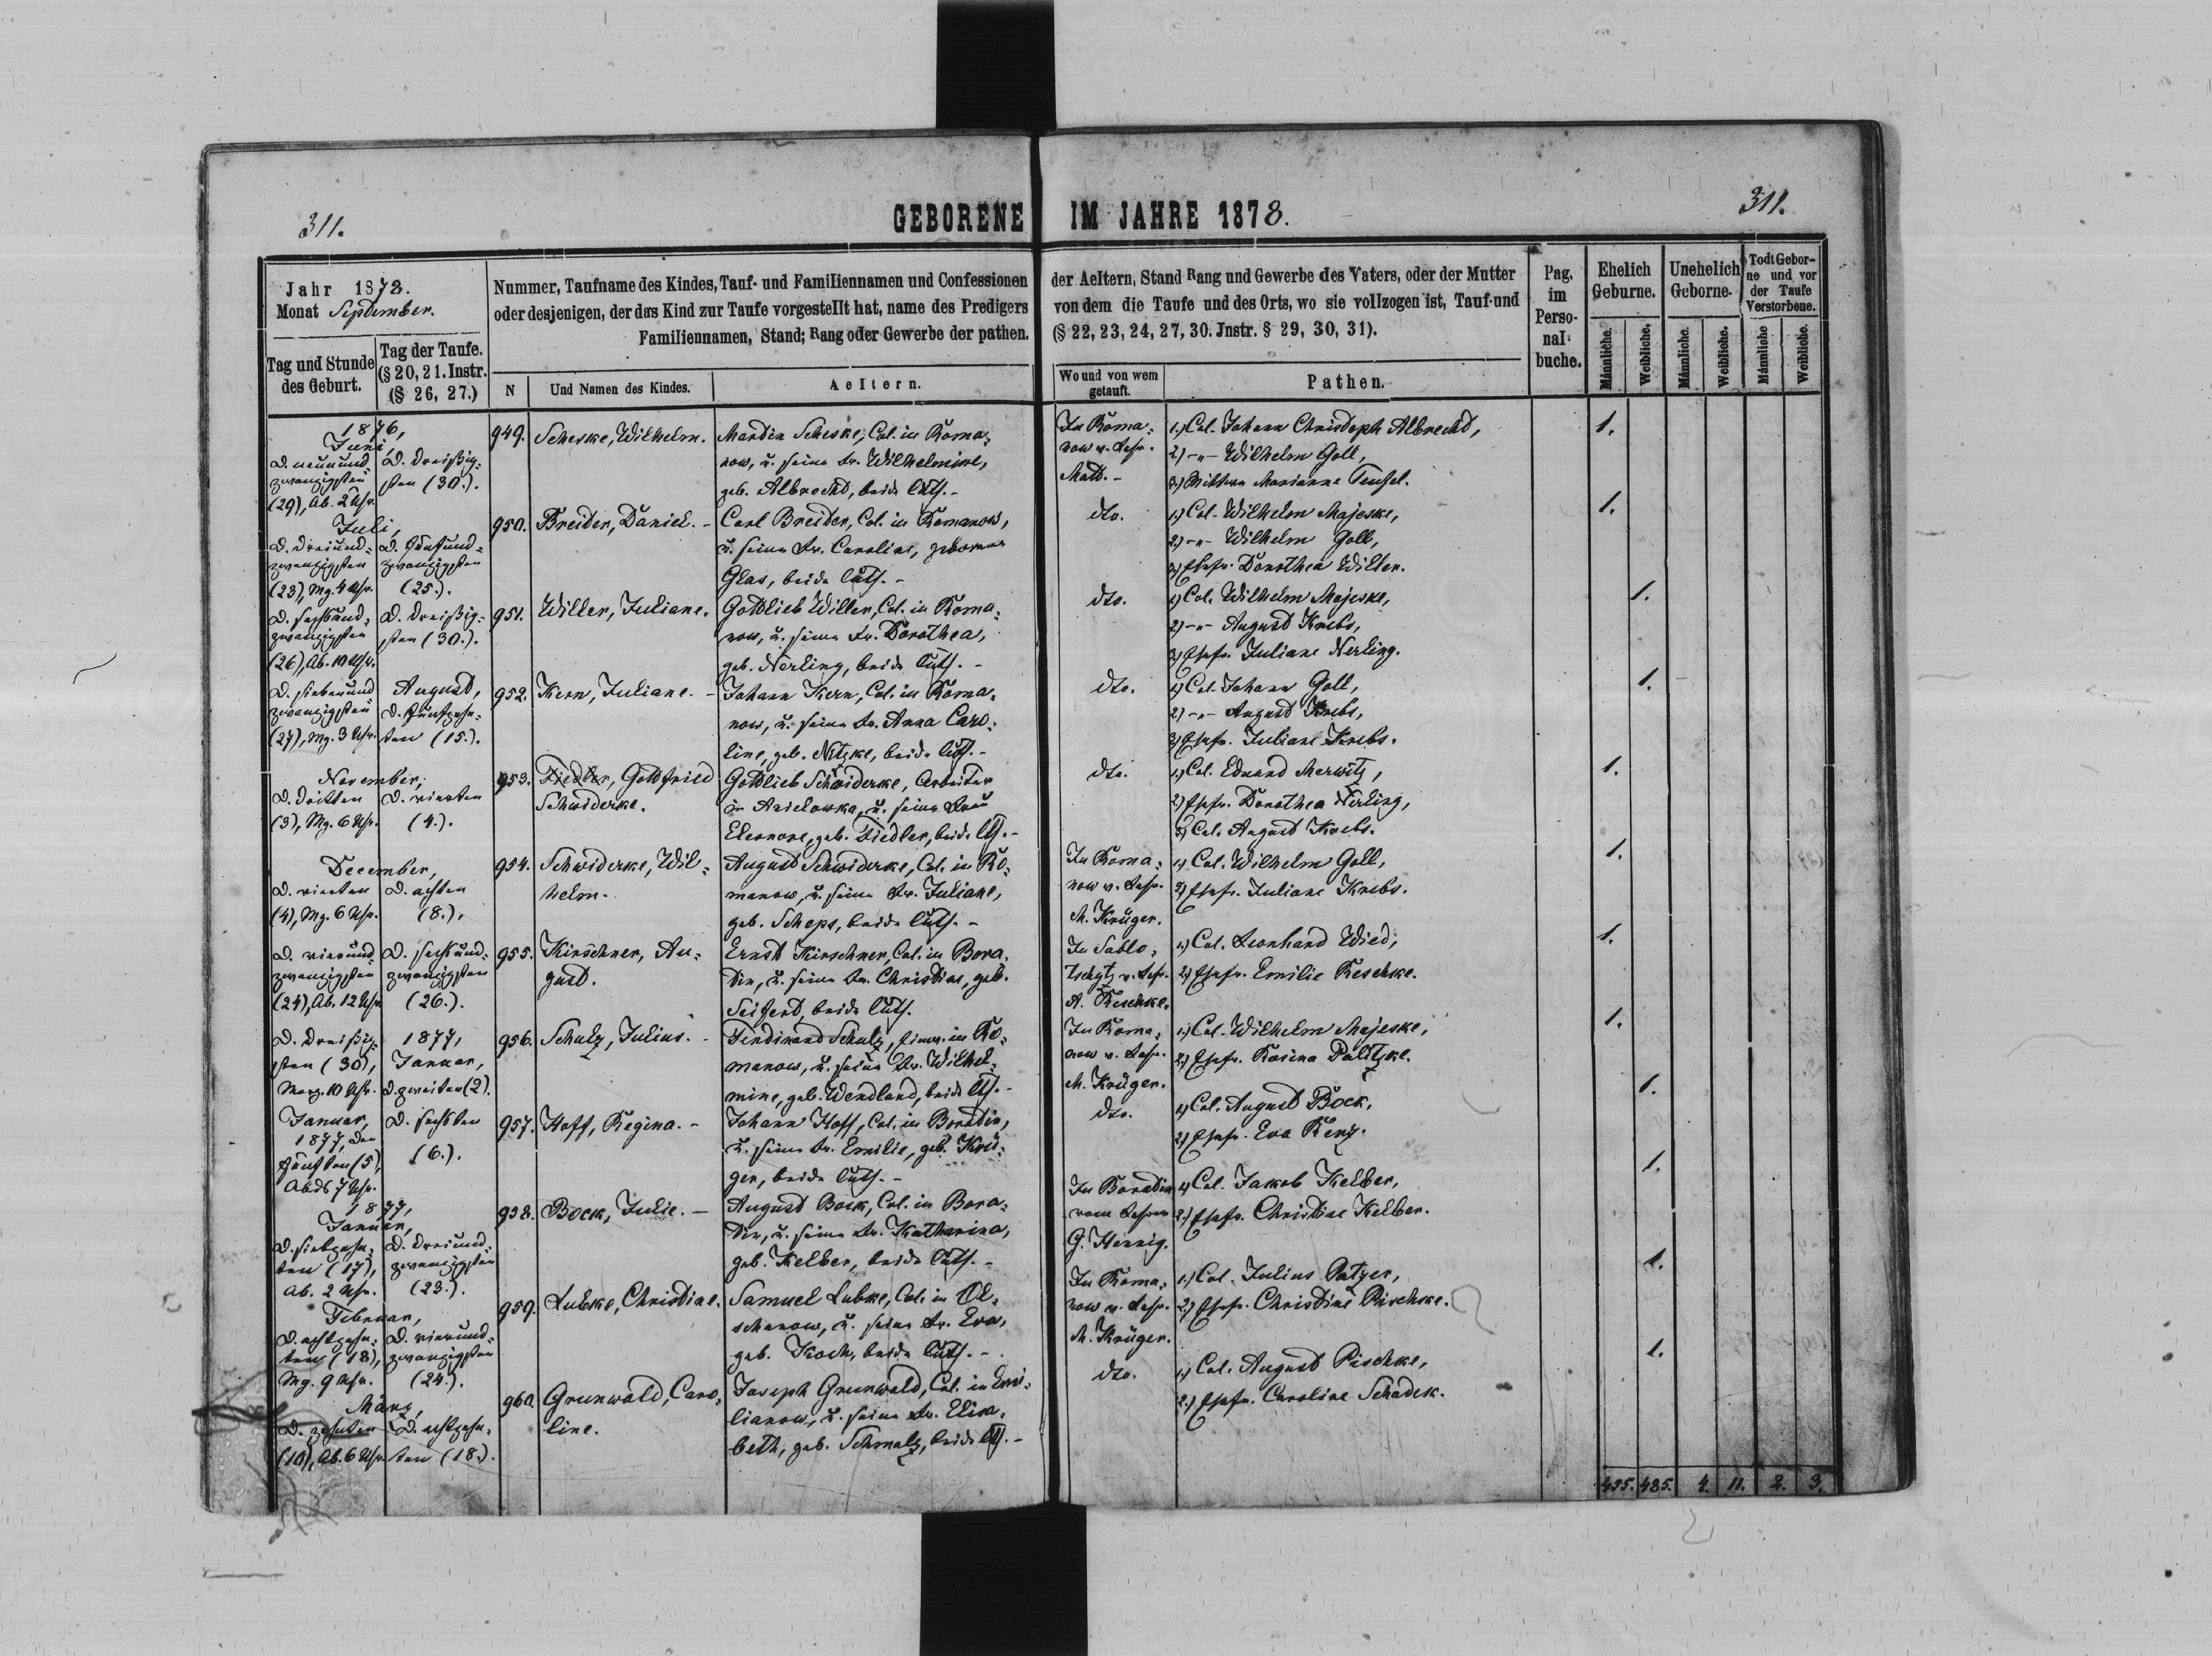 311.
GEBORENE IM JAHRE 1878.
311.
Jahr 1878.
Monat September.
Tag und Stunde des Geburt.
Tag der Taufe. (§ 20, 21. Instr. (§ 26, 27.)
Nummer, Taufname des Kindes, Tauf- und Familiennamen und Confessionen der Aeltern, Stand Rang und Gewerbe des Vaters, oder der Mutter
oder desjenigen, der das Kind zur Taufe vorgestellt hat, name des Predigers von dem die Taufe und des Orts, wo sie vollzogen ist, Tauf-und
Familiennamen, Stand; Rang oder Gewerbe der pathen. (§ 22, 23, 24, 27, 30. Jnstr. § 29, 30, 31).
N
Und Namen des Kindes.
Aeltern.
Wo und von wem getauft.
Pathen.
Pag. im Perso- nal- buche.
Ehelich Geburne.
Unehelich Geborne.
Todt Gebor- ne und vor der Taufe Verstorbene.
Männliche.
Weibliche.
Männliche.
Weibliche.
Männliche
Weibliche.
1876,
Juni,
D. neunund
zwanzigsten
(29), Ab. 2 Uhr.
D. dreißig-
sten (30.).
949.
Scheske, Wilhelm.
Martin Scheske, Col. in Roma-
now, u. seine Fr. Wilhelmine,
geb. Albrecht, beide luth. -
In Roma-
now v. Lehr.
1.) Col. Johann Christoph Albrecht,
2.) -"- Wilhelm Goll,
3.) Wittwe Marianne Teufel.
1.
Juli,
D. dreiund-
zwanzigsten
(23), Mg. 4 Uhr.
D. Fünfund-
zwanzigsten
(25.).
950.
Breiter, Daniel. -
Carl Breiter, Col. in Romanow,
u. seine Fr. Caroline, geborene
Glas, beide luth. -
dto.
1.) Col. Wilhelm Majeske,
2.) -"- Wilhelm Goll,
3.) Ehefr. Dorothea Willer.
1.
D. sechsund-
zwanzigsten
(26), Ab. 10 Uhr.
D. dreißig-
sten (30.).
951.
Willer, Juliane.
Gottlieb Willer, Col. in Roma-
now, u. seine Fr. Dorothea,
geb. Nerling, beide luth. -
dto.
1.) Col. Wilhelm Majeske,
2.) -"- August Krebs,
3.) Ehefr. Juliane Nerling.
1.
D. siebenund
zwanzigsten
(27), Mg. 3 Uhr.
August,
D. Fünfzehn-
ten (15.).
952.
Kern, Juliane. -
Johann Kern, Col. in Roma-
now, u. seine Fr. Anna Caro-
line, geb. Nitzke, beide luth. -
dto.
1.) Col. Johann Goll,
2.) -"- August Krebs,
3.) Ehefr. Juliane Krebs.
1.
November,
D. dritten
(3), Mg. 6 Uhr.
D. vierten
(4.).
953.
Fiedler, Gottfried
Schwiderke.
Gottlieb Schwiderke, Arbeiter
in Anielowka, u. seine Frau
Eleonore, geb. Fiedler, beide luth. -
dto.
1.) Col. Eduard Merwitz,
2.) Ehefr. Dorothea Nerling,
3.) Col. August Krebs.
1.
December,
D. vierten
(4), Mg. 6 Uhr.
D. achten
(8.).
954.
Schwiderke, Wil-
helm.
August Schwiderke, Col. in Ro-
manow, u. seine Fr. Juliane,
geb. Scheps, beide luth. -
In Roma-
now v. Lehr.
M. Krüger.
1.) Col. Wilhelm Goll,
2.) Ehefr. Juliane Krebs.
1.
D. vierund-
zwanzigsten
(24), Ab. 12 Uhr
D. sechsund-
zwanzigsten
(26.).
955.
Kirschner, Au-
gust.
Ernst Kirschner, Col. in Bora-
tin, u. seine Fr. Christine, geb.
Seifert, beide luth.
In Sablo-
tschytz v. Lehr.
A. Reschke.
1.) Col. Leonhard Wied,
2.) Ehefr. Emilie Reschke.
1.
D. Dreißig-
sten (30),
Morg. 10 Uhr.
1877,
Januar,
D. zweiten (2).
956.
Schulz, Julius. -
Ferdinand Schulz, Einw. in Ro-
manow, u. seine Fr. Wilhel-
mine, geb. Wendland, beide luth. -
In Roma-
now v. Lehr.
M. Krüger.
1.) Col. Wilhelm Majeske,
2.) Ehefr. Rosina Palitzke.
1.
Januar,
1877, den
fünften (5),
Abds 7 Uhr.
D. sechsten
(6.).
957.
Hoff, Regina. -
Johann Hoff, Col. in Boratin,
u. seine Fr. Emilie, geb. Krü-
ger, beide luth. -
dto.
1.) Col. August Bock,
2.) Ehefr. Eva Renz.
1.
1877,
Januar,
D. siebzehn-
ten (17),
Ab. 2 Uhr.
D. dreiund-
zwanzigsten
(23.).
958.
Bock, Julie. -
August Bock, Col. in Bora-
tin, u. seine Fr. Katharina,
geb. Kelber, beide luth. -
In Boratin
vom Lehrer
G. Hennig.
1.) Col. Jakob Kelber,
2.) Ehefr. Christine Kelber.
1.
Februar,
D. achtzehn-
ten (18),
Mg. 9 Uhr.
D. vierund-
zwanzigsten
(24.).
959.
Lubke, Christine.
Samuel Lubke, Col. in Ol-
schanow, u. seine Fr. Eva,
geb. Koch, beide luth. -
In Roma-
now v. Lehr.
M. Krüger.
1.) Col. Julius Patzer,
2.) Ehefr. Christine Pischke.
1.
März,
D. zehnten
(10), Ab. 6 Uhr
D. achtzehn-
ten (18.).
960.
Grunwald, Caro-
line.
Joseph Grunwald, Col. in Emi-
lianow, u. seine Fr. Elisa-
beth, geb. Schmalz, beide luth. -
dto.
1.) Col. August Pischke,
2.) Ehefr. Caroline Schadek.
1.
485.
4.
11.
2.
3.